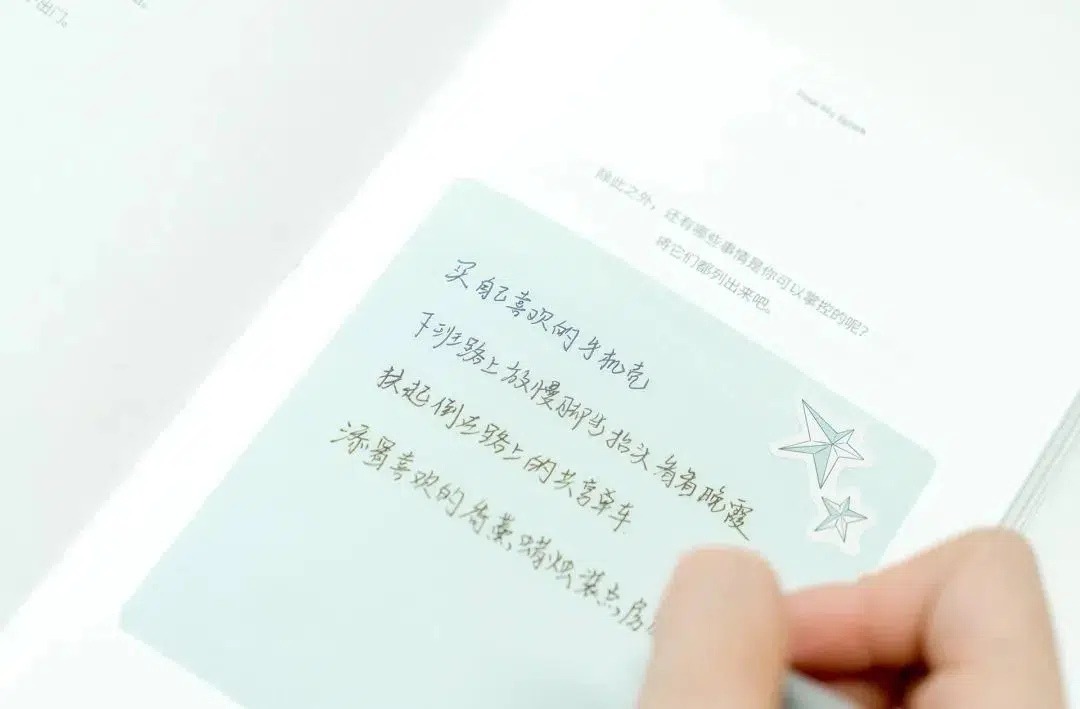 出门。
除此之外，还有哪些事情是你可以掌控的呢？
将它们都列出来吧。
买自己喜欢的手机壳
下班路上放慢脚步抬头看看晚霞
扶起倒在路上的共享单车
添置喜欢的香薰蜡烛装点房